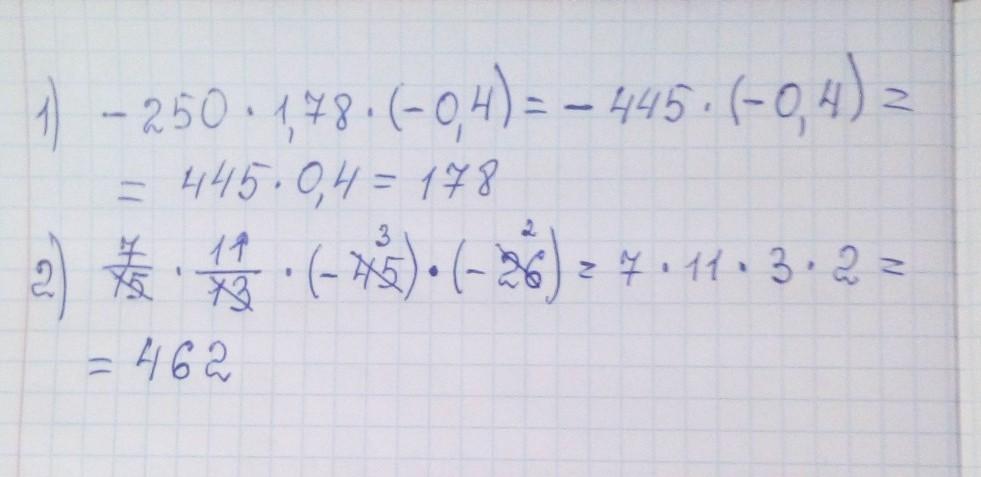 1) -250 · 1,78 · (-0,4) = -445 · (-0,4) =
= 445 · 0,4 = 178
2) 7/15 · 11/13 · (-45) 3 · (-26) 2 = 7 · 11 · 3 · 2 =
= 462